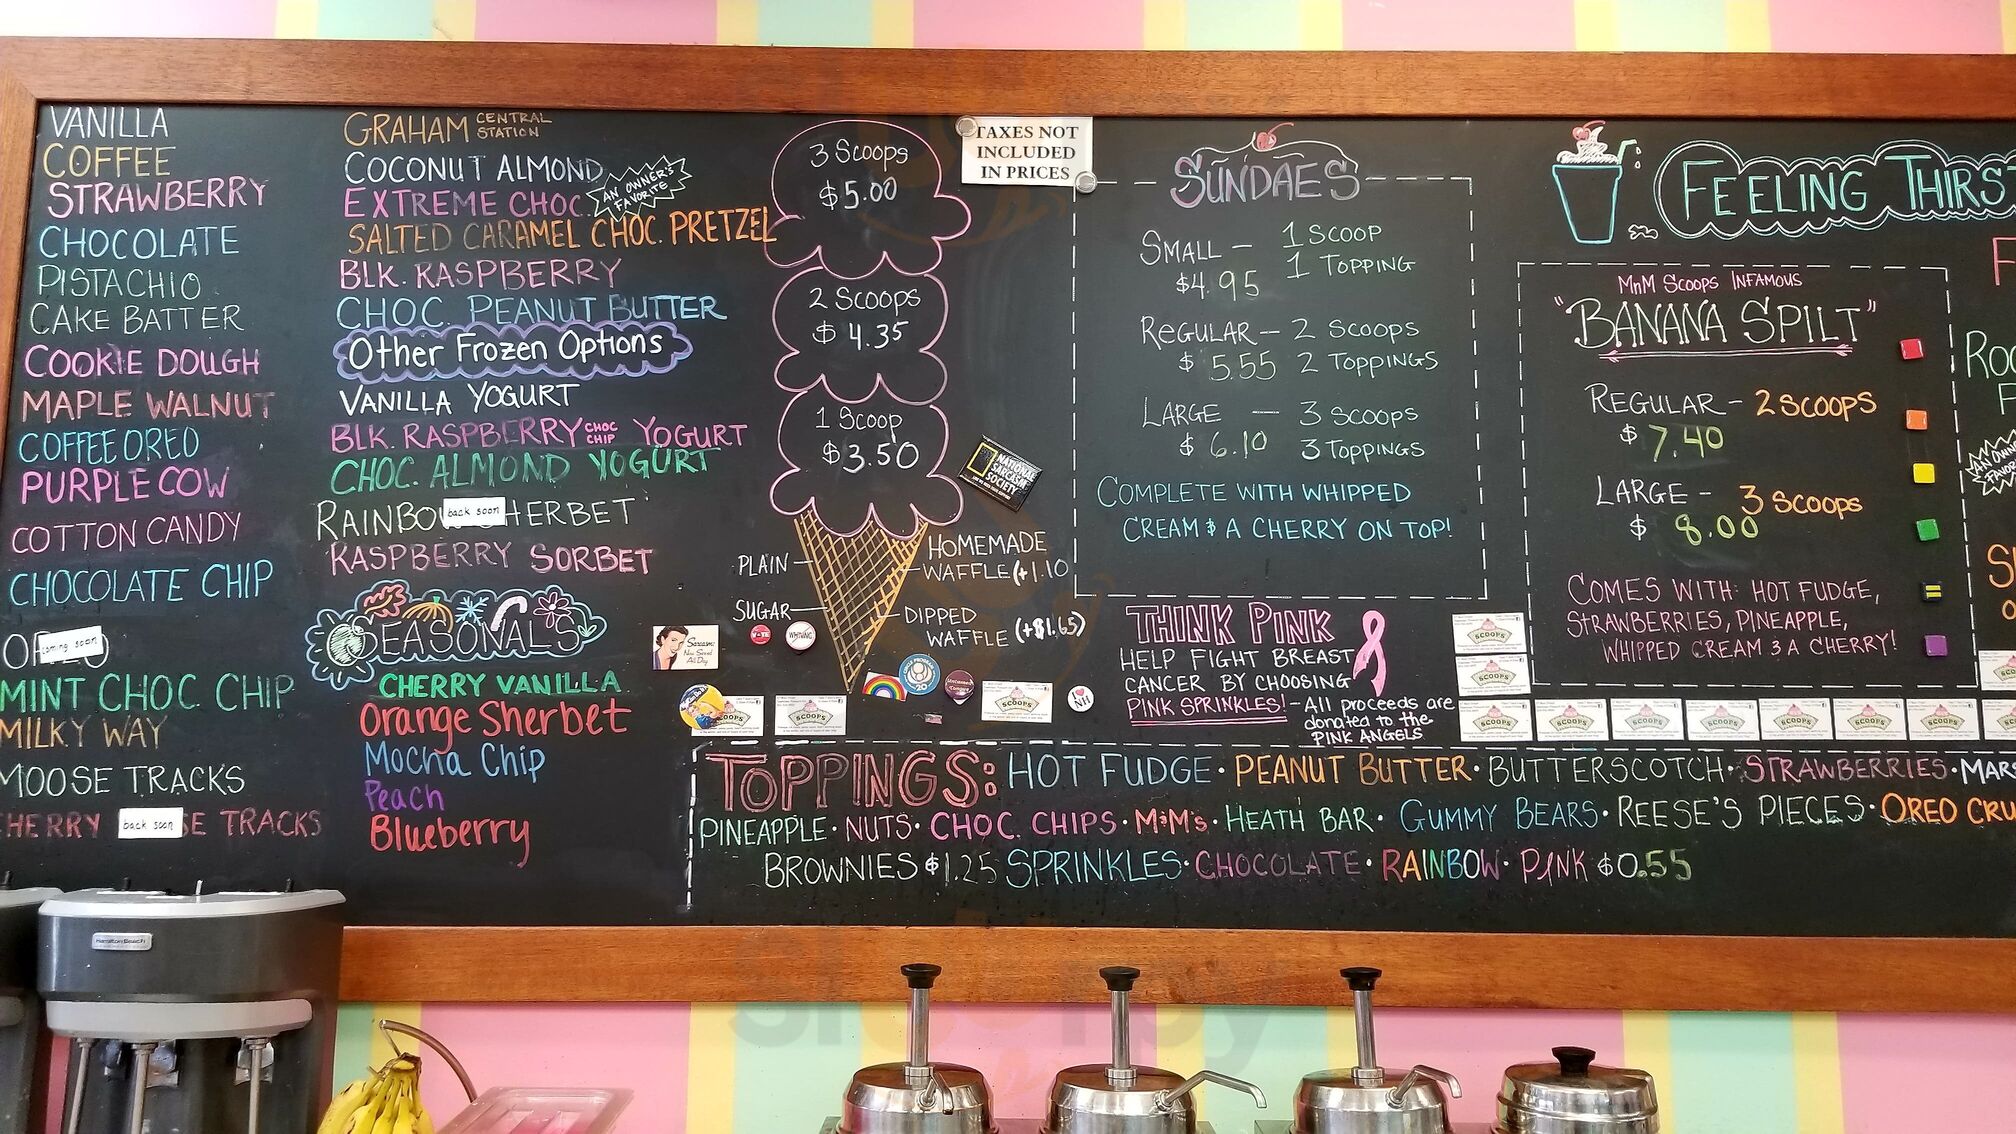 VANILLA
COFFEE
STRAWBERRY
CHOCOLATE
PISTACHIO
CAKE BATTER
COOKIE DOUGH
MAPLE WALNUT
COFFEE OREO
PURPLE COW
COTTON CANDY
CHOCOLATE CHIP
coming soon
MINT CHOC. CHIP
MILKY WAY
MOOSE TRACKS
HERRY back soon SE TRACKS
GRAHAM CENTRAL STATION
COCONUT ALMOND
EXTREME CHOC. AN OWNER'S FAVORITE
SALTED CARAMEL CHOC. PRETZEL
BLK. RASPBERRY
CHOC. PEANUT BUTTER
Other Frozen Options
VANILLA YOGURT
BLK. RASPBERRY CHOC CHIP YOGURT
CHOC. ALMOND YOGURT
RAINBOW back soon HERBET
RASPBERRY SORBET
SEASONALS
CHERRY VANILLA
Orange Sherbet
Mocha Chip
Peach
Blueberry
3 Scoops
$5.00
2 Scoops
$4.35
1 Scoop
$3.50
PLAIN
SUGAR
HOMEMADE
WAFFLE (+1.10
DIPPED
WAFFLE (+$1.65)
TAXES NOT
INCLUDED
IN PRICES
NATIONAL
SARCASM
SOCIETY
VOTE
I NH
SUNDAES
SMALL - 1 SCOOP
$4.95 1 TOPPING
REGULAR - 2 SCOOPS
$5.55 2 TOPPINGS
LARGE - 3 SCOOPS
$6.10 3 TOPPINGS
COMPLETE WITH WHIPPED
CREAM & A CHERRY ON TOP!
THINK PINK
HELP FIGHT BREAST
CANCER BY CHOOSING
PINK SPRINKLES! - All proceeds are
donated to the
PINK ANGELS
FEELING THIRST
MnM SCOOPS INFAMOUS
"BANANA SPILT"
REGULAR - 2 SCOOPS
$7.40
LARGE - 3 SCOOPS
$8.00
COMES WITH: HOT FUDGE,
STRAWBERRIES, PINEAPPLE,
WHIPPED CREAM & A CHERRY!
SCOOPS
SCOOPS
SCOOPS
SCOOPS
SCOOPS
SCOOPS
SCOOPS
SCOOPS
SCOOPS
SCOOPS
SCOOPS
SCOOPS
TOPPINGS: HOT FUDGE · PEANUT BUTTER · BUTTERSCOTCH · STRAWBERRIES · MARS
PINEAPPLE · NUTS · CHOC. CHIPS · M&M's · HEATH BAR · GUMMY BEARS · REESE'S PIECES · OREO CRU
BROWNIES $1.25 SPRINKLES · CHOCOLATE · RAINBOW · PINK $0.55
Hamilton Beach